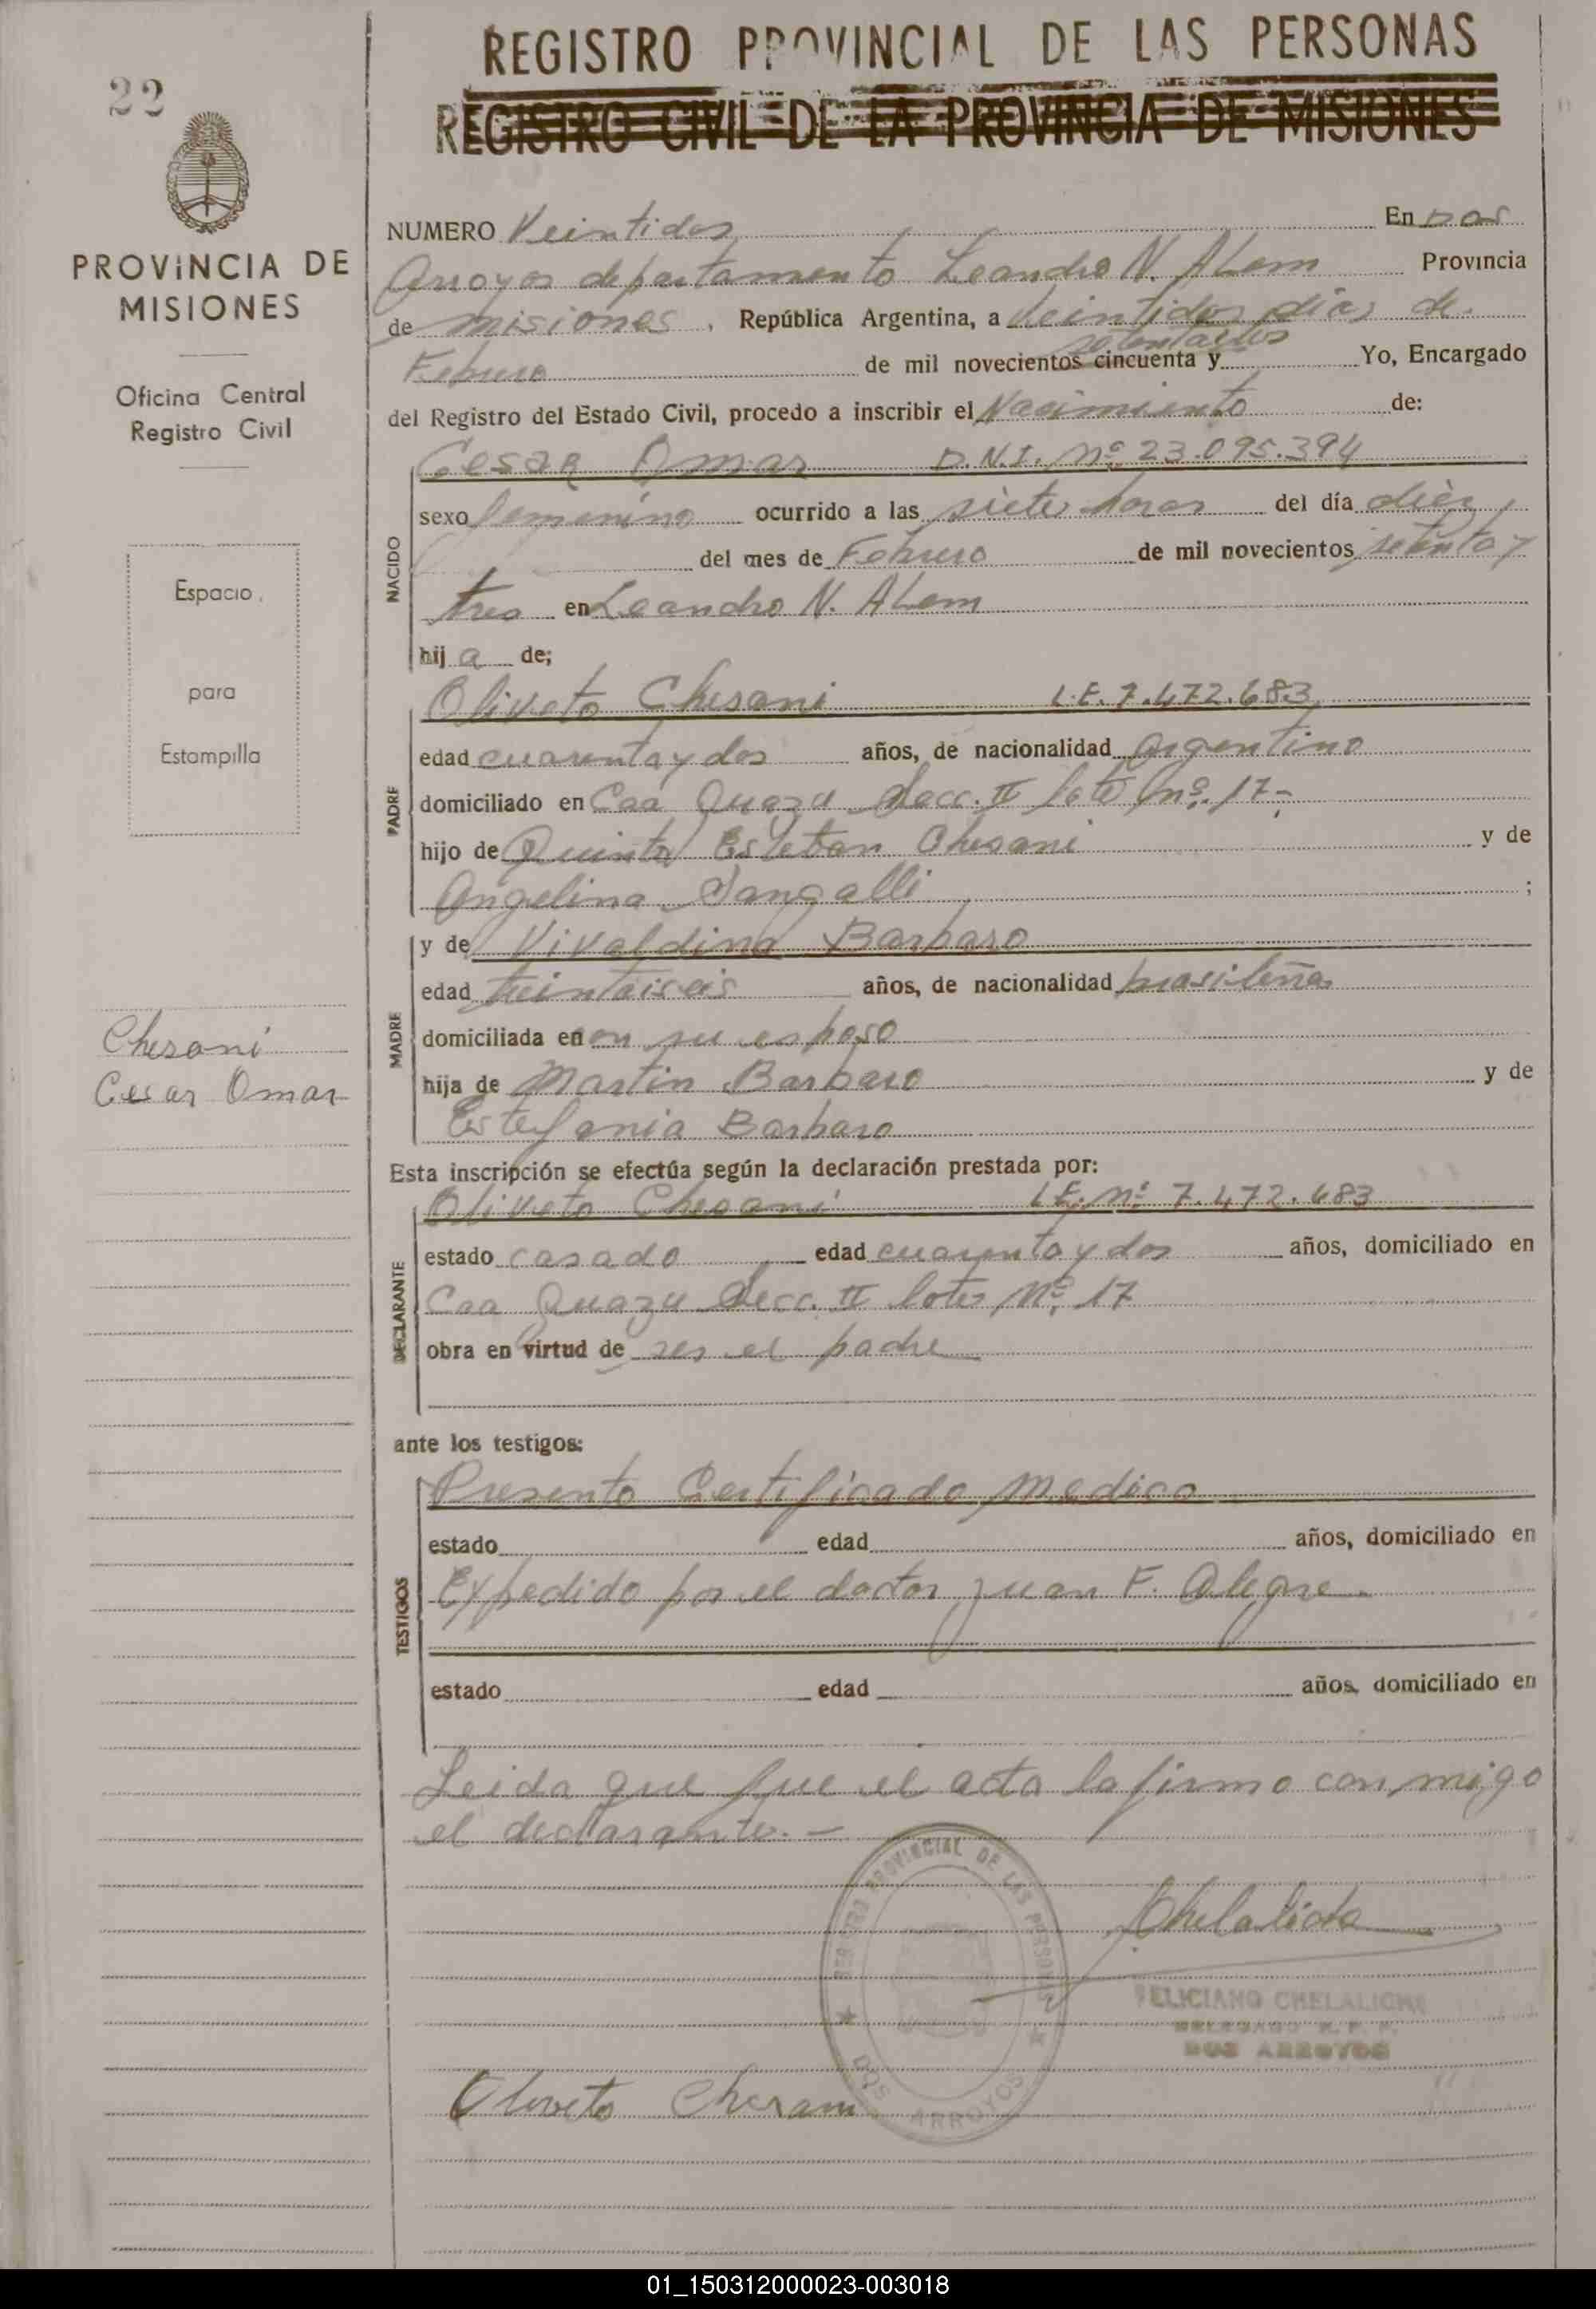 REGISTRO PROVINCIAL DE LAS PERSONAS
REGISTRO CIVIL DE LA PROVINCIA DE MISIONES
22
PROVINCIA DE
MISIONES
Oficina Central
Registro Civil
Espacio
para
Estampilla
Chesani
Cesar Omar
NUMERO Veintidos En Dos
Arroyos departamento Leandro N. Alem Provincia
de misiones, República Argentina, a Veintidos dias de
Febrero de mil novecientos cincuenta y Yo, Encargado
del Registro del Estado Civil, procedo a inscribir el Nacimiento de:
NACIDO
Cesar Omar D.N.I. Nº 23.095.394
sexo femenino ocurrido a las siete horas del día dièz
del mes de Febrero de mil novecientos setenta y
tres en Leandro N. Alem
hij a de;
PADRE
Oliveto Chesani L.E. 7.472.683
edad cuarenta y dos años, de nacionalidad argentino
domiciliado en Caa Guazu Secc. II lote nº. 17-
hijo de Quinto Esteban Chesani y de
Angelina Sangalli ;
MADRE
y de Vivaldina Barbaro
edad treintaiseis años, de nacionalidad brasileña
domiciliada en con su esposo
hija de Martin Barbaro y de
Estefania Barbaro
Esta inscripción se efectúa según la declaración prestada por:
DECLARANTE
Oliveto Chesani L.E. nº 7.472.683
estado casado edad cuarenta y dos años, domiciliado en
Caa Guazu Secc. II lote Nº. 17
obra en virtud de ser el padre
ante los testigos:
TESTIGOS
Presento Certificado medico
estado edad años, domiciliado en
Expedido por el doctor Juan F. Alegre
estado edad años, domiciliado en
Leida que fue el acta la firmo con migo
el declarante. -
REGISTRO PROVINCIAL DE LAS PERSONAS
DOS ARROYOS
FELICIANO CHELALICHE
DELEGADO R. P. P.
DOS ARROYOS
Oliveto Chesani
01_150312000023-003018